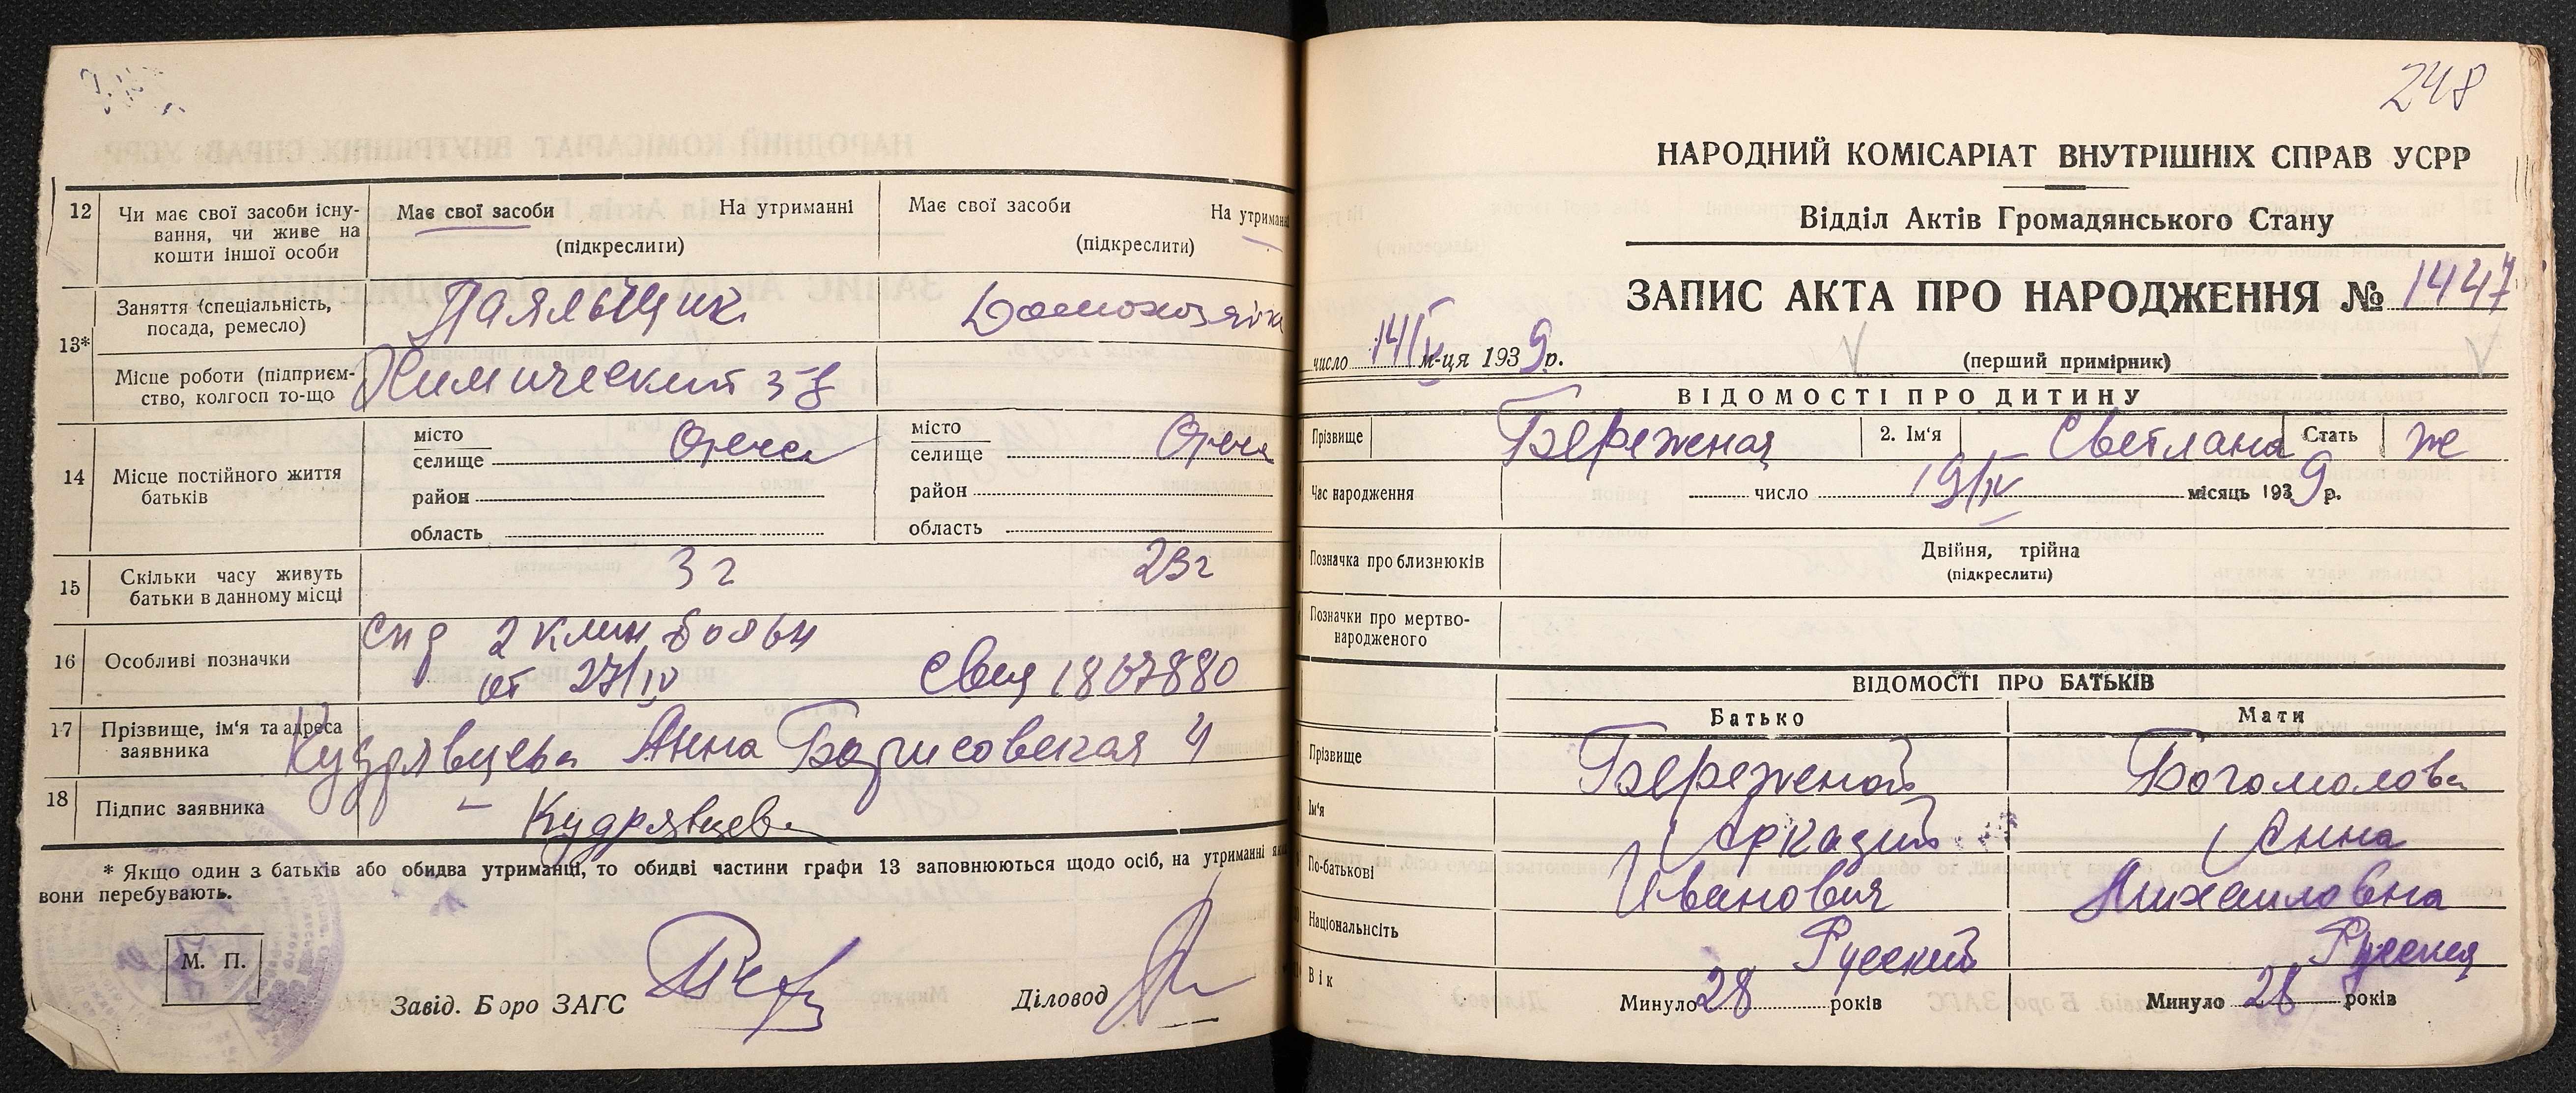 12 Чи має свої засоби існу-
вання, чи живе на
кошти іншої особи
Має свої засоби На утриманні
(підкреслити)
Має свої засоби На утриманні
(підкреслити)
13* Заняття (спеціальність,
посада, ремесло)
Паяльщик Домохозяйка
Місце роботи (підприєм-
ство, колгосп то-що
Химический з-д
14 Місце постійного життя
батьків
місто Одесса
селище
район
область
місто Одесса
селище
район
область
15 Скільки часу живуть
батьки в данному місці
3 г 23 г
16 Особливі позначки
Спр 2 Клин больн
от 27/IV Свид 1867880
17 Прізвище, ім'я та адреса
заявника
Кудрявцева Анна Борисовская 4
18 Підпис заявника
Кудрявцева
* Якщо один з батьків або обидва утриманці, то обидві частини графи 13 заповнюються щодо осіб, на утриманні яких
вони перебувають.
М. П.
Завід. Бюро ЗАГС
Діловод
248
НАРОДНИЙ КОМІСАРІАТ ВНУТРІШНІХ СПРАВ УСРР
Відділ Актів Громадянського Стану
ЗАПИС АКТА ПРО НАРОДЖЕННЯ № 1447
число 14/V м-ця 1939 р.
(перший примірник)
ВІДОМОСТІ ПРО ДИТИНУ
Прізвище Бережная 2. Ім'я Светлана Стать же
Час народження число 19/IV місяць 1939 р.
Позначка про близнюків
Двійня, трійна
(підкреслити)
Позначки про мертво-
народженого
ВІДОМОСТІ ПРО БАТЬКІВ
Батько Мати
Прізвище Бережной Богомолова
Ім'я Аркадий Анна
По-батькові Иванович Михаиловна
Національність Русский Русская
Вік Минуло 28 років Минуло 28 років